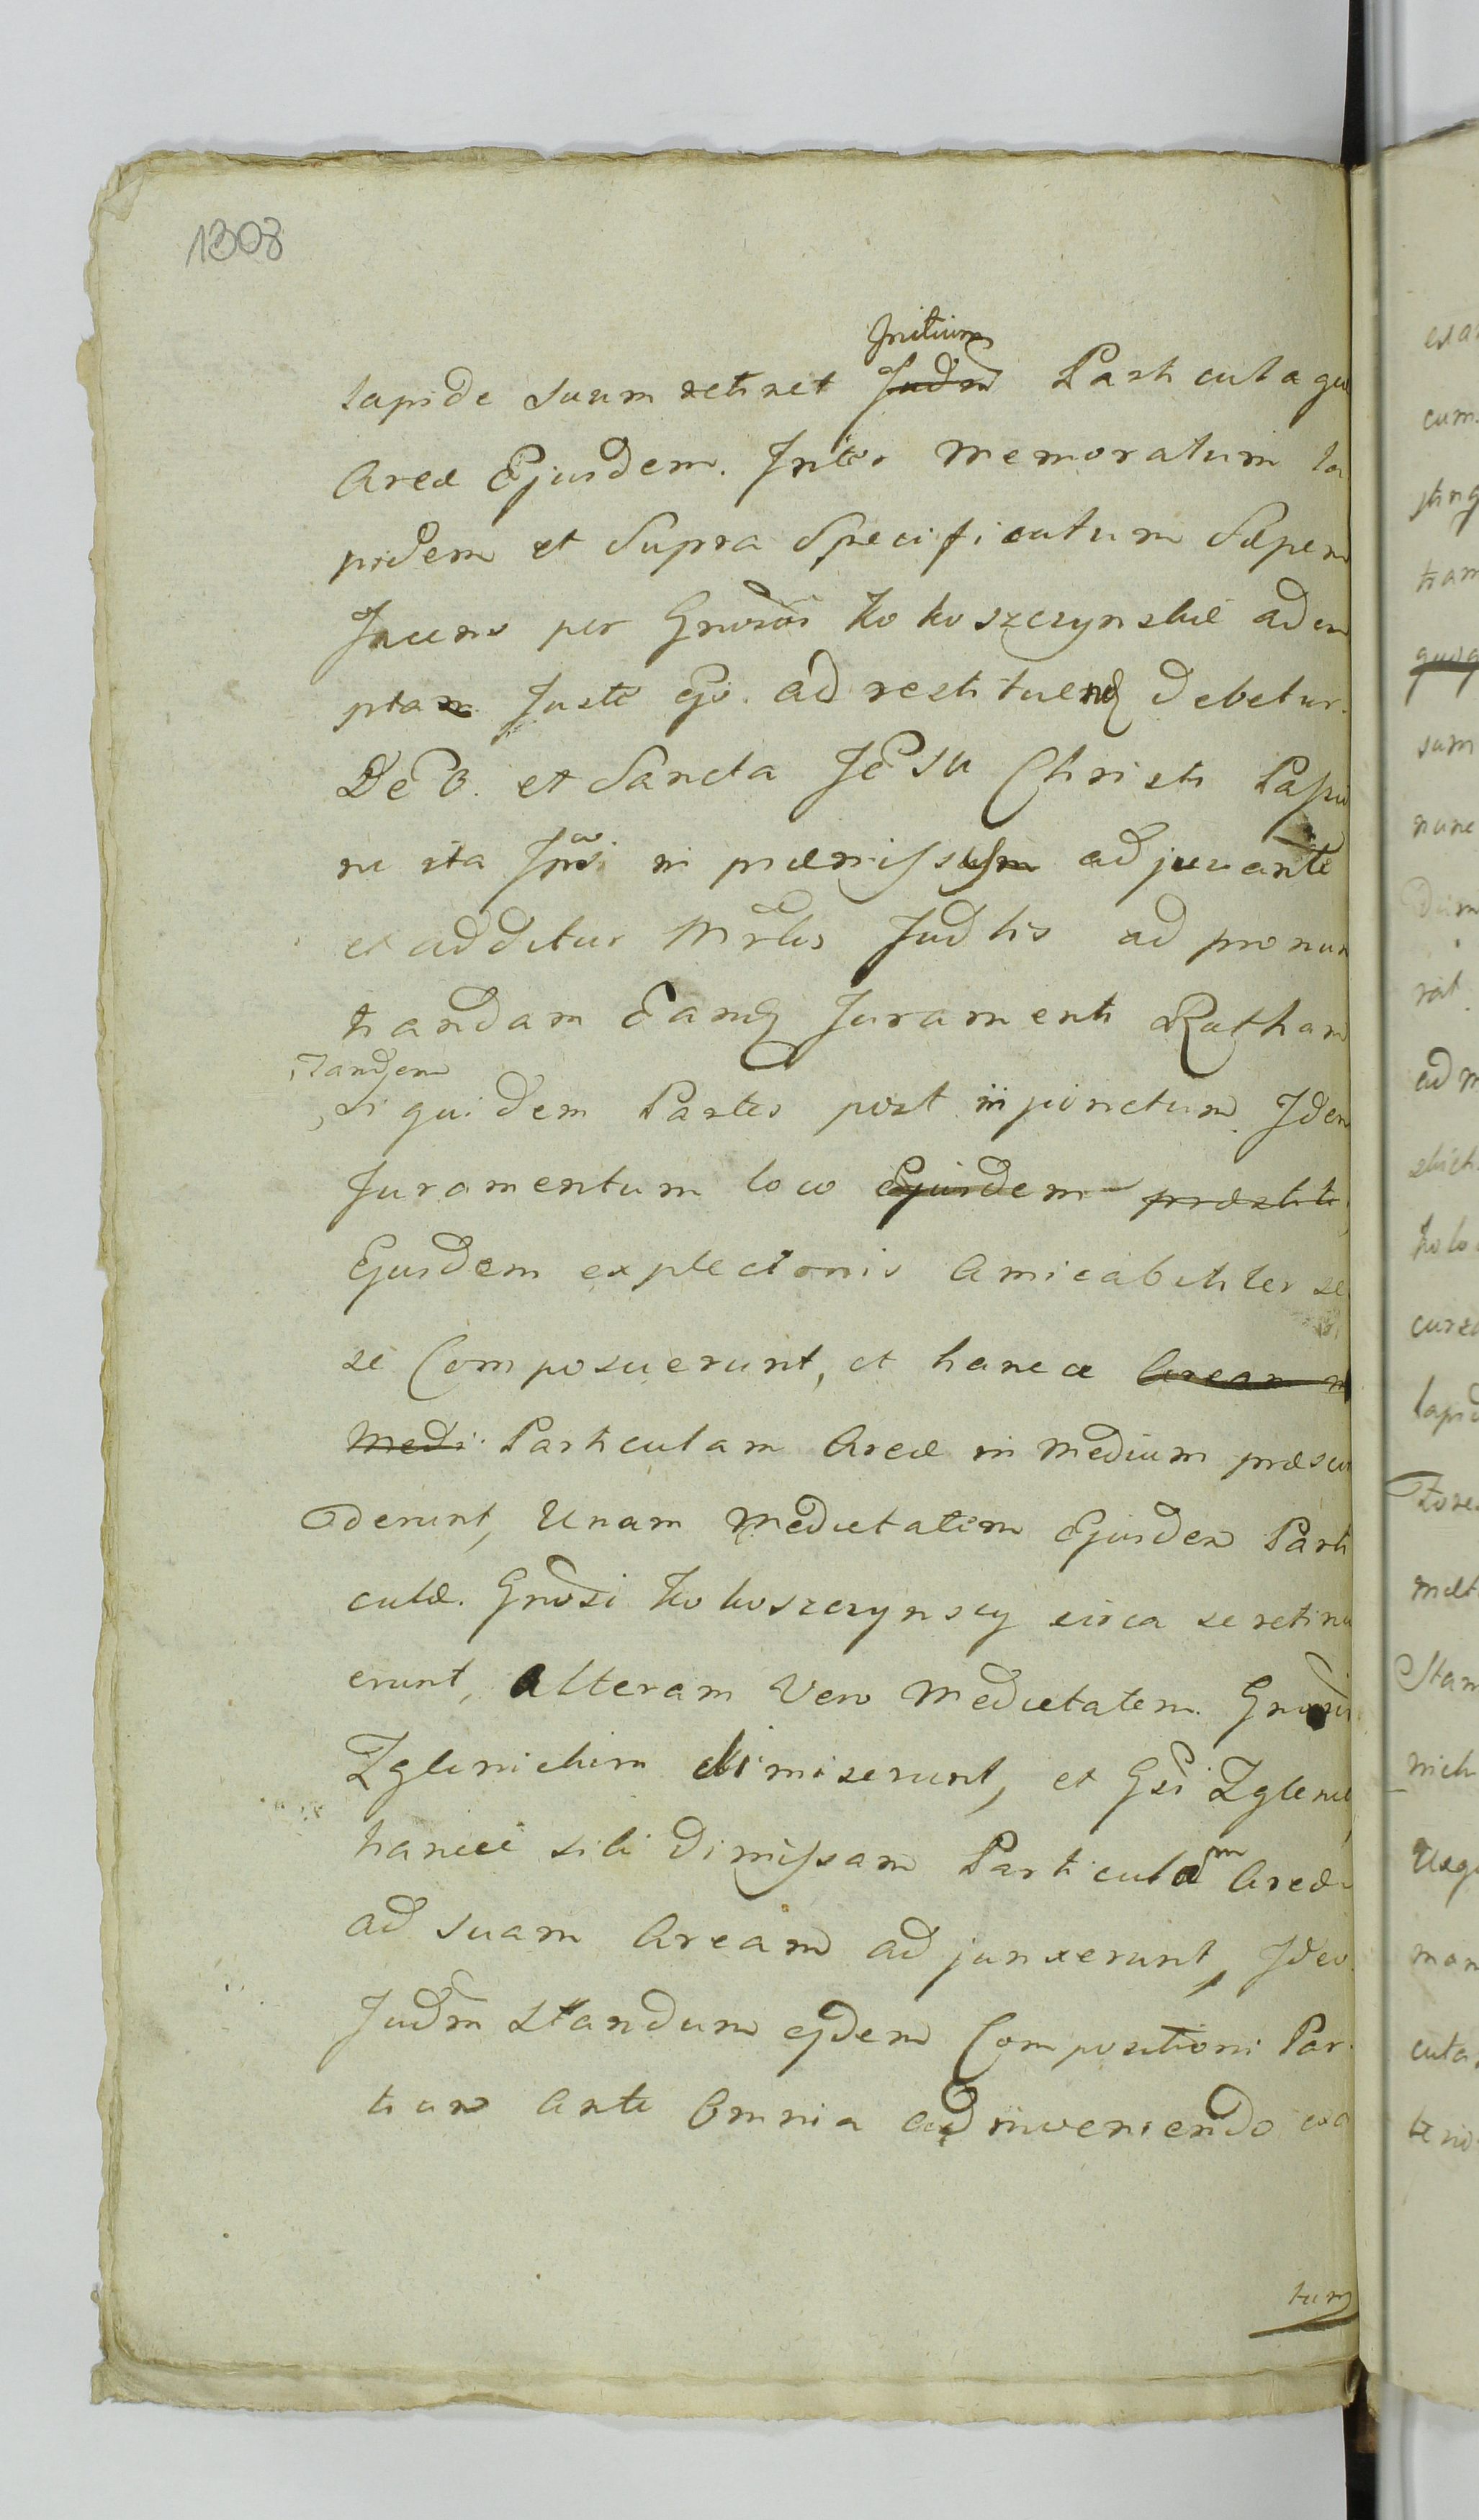 1303
Initium
lapide suum retinet Judm Particulaque
Areæ Ejusdem. Inter memoratum la
pidem et supra specificatum Sæpem
Jacens per Gnosos Kokoszczynskie adem
ptam Juste Ejs. ad restituend debetur.
DeO. et Sancta JeSu Christi Passio
ne ita Ipsos in præmissum adjuvante
et additur Mrlis Judlis ad pronun
tiandam Eand Juramenti Rotham
Tandem
, si quidem Partes post injunctum Idem
Juramentum loco Ejusdem præstiti
Ejusdem expletionis Amicabiliter se
se Composuerunt, et hancce Aream in
Medi Particulam Areæ in medium præscin
derunt, Unam medietatem Ejusdem Parti
culæ. Gnosi Kokoszczynscy circa se retinu
erunt, Alteram Vero Medietatem. Gnosis
Zglinickim dimiserunt, et Gsi Zglinic
hancce sibi dimissam Particulam Areæ
ad suam Aream adjunxerunt, Ideo
Judm standum ejdem Compositioni Par
tium Ante Omnia adinveniendo exa
tum